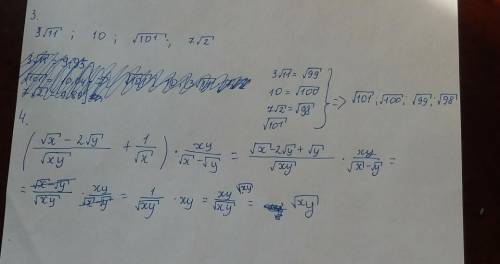 3.
3√11 ; 10 ; √101 ; 7√2
3√11 = √99
10 = √100
7√2 = √98
√101
=> √101 ; √100 ; √99 ; √98
4.
((√x - 2√y)/√(xy) + 1/√x) · xy/(√x - √y) = (√x - 2√y + √y)/√(xy) · xy/(√x - √y) =
= (√x - √y)/√(xy) · xy/(√x - √y) = 1/√(xy) · xy = xy/√(xy) = √(xy)